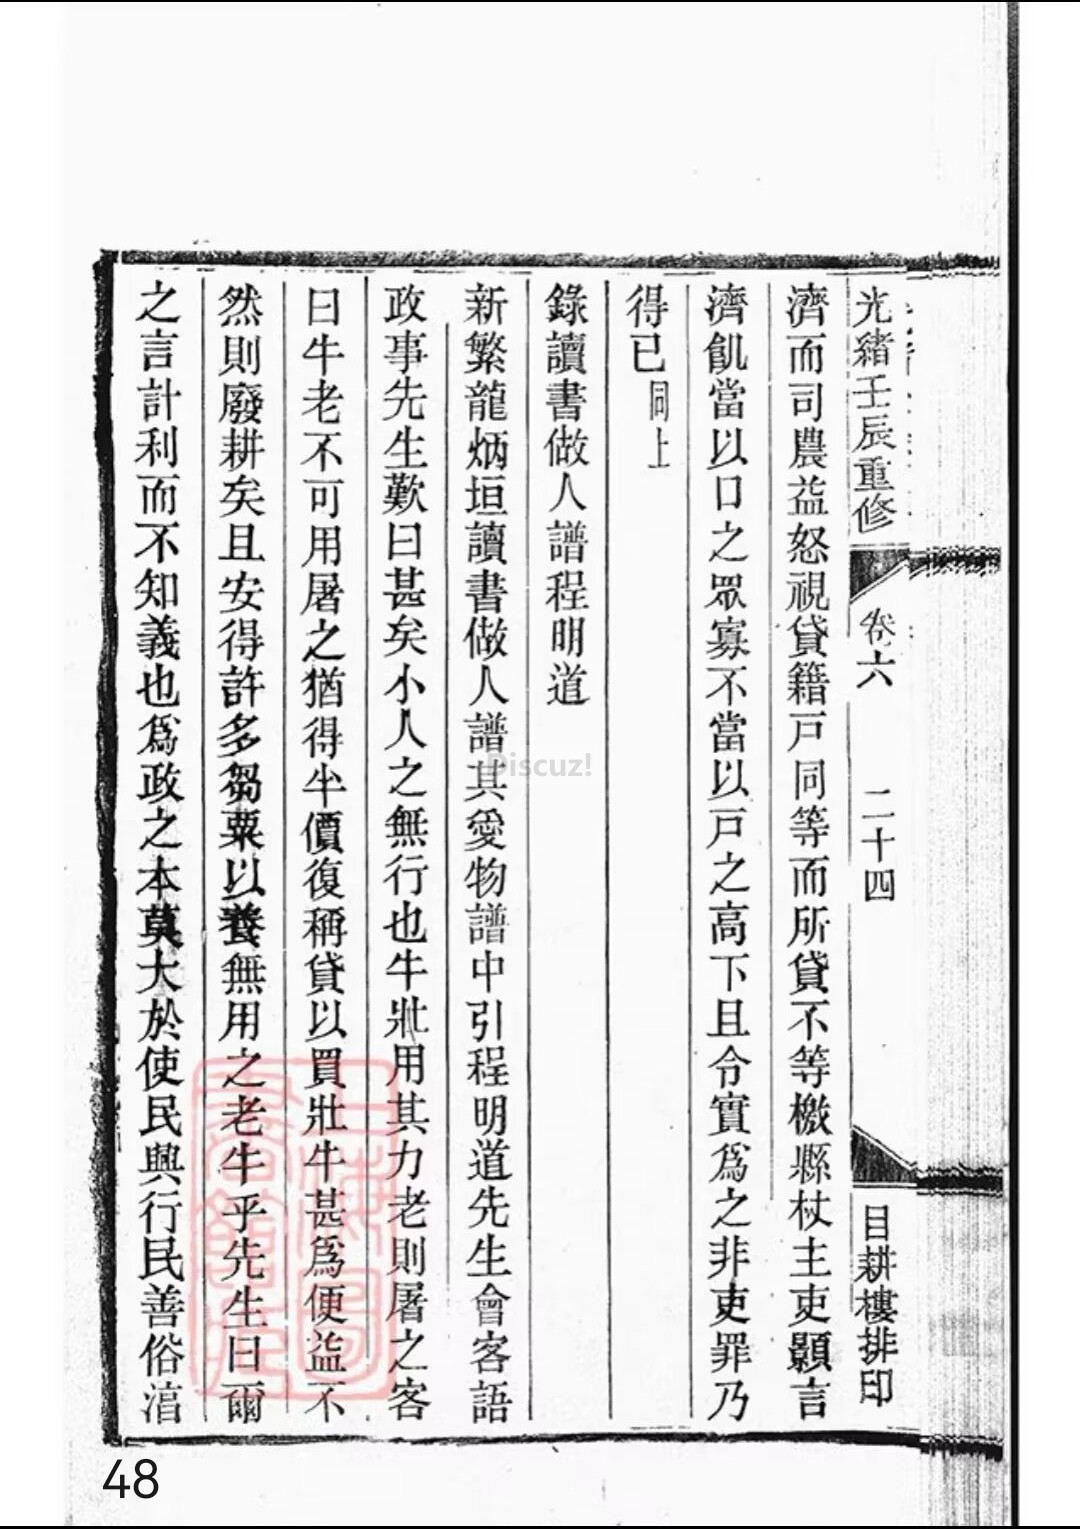 光緒壬辰重修 卷六 二十四 目耕樓排印
濟而司農益怒視貸籍戶同等而所貸不等檄縣杖主吏顥言
濟飢當以口之眾寡不當以戶之高下且令實爲之非吏罪乃
得已同上
錄讀書做人譜程明道
新繁龍炳垣讀書做人譜其愛物譜中引程明道先生會客語
政事先生歎曰甚矣小人之無行也牛壯用其力老則屠之客
曰牛老不可用屠之猶得半價復稱貸以買壯牛甚爲便益不
然則廢耕矣且安得許多芻粟以養無用之老牛乎先生曰爾
之言計利而不知義也爲政之本莫大於使民興行民善俗淳
Discuz!
48